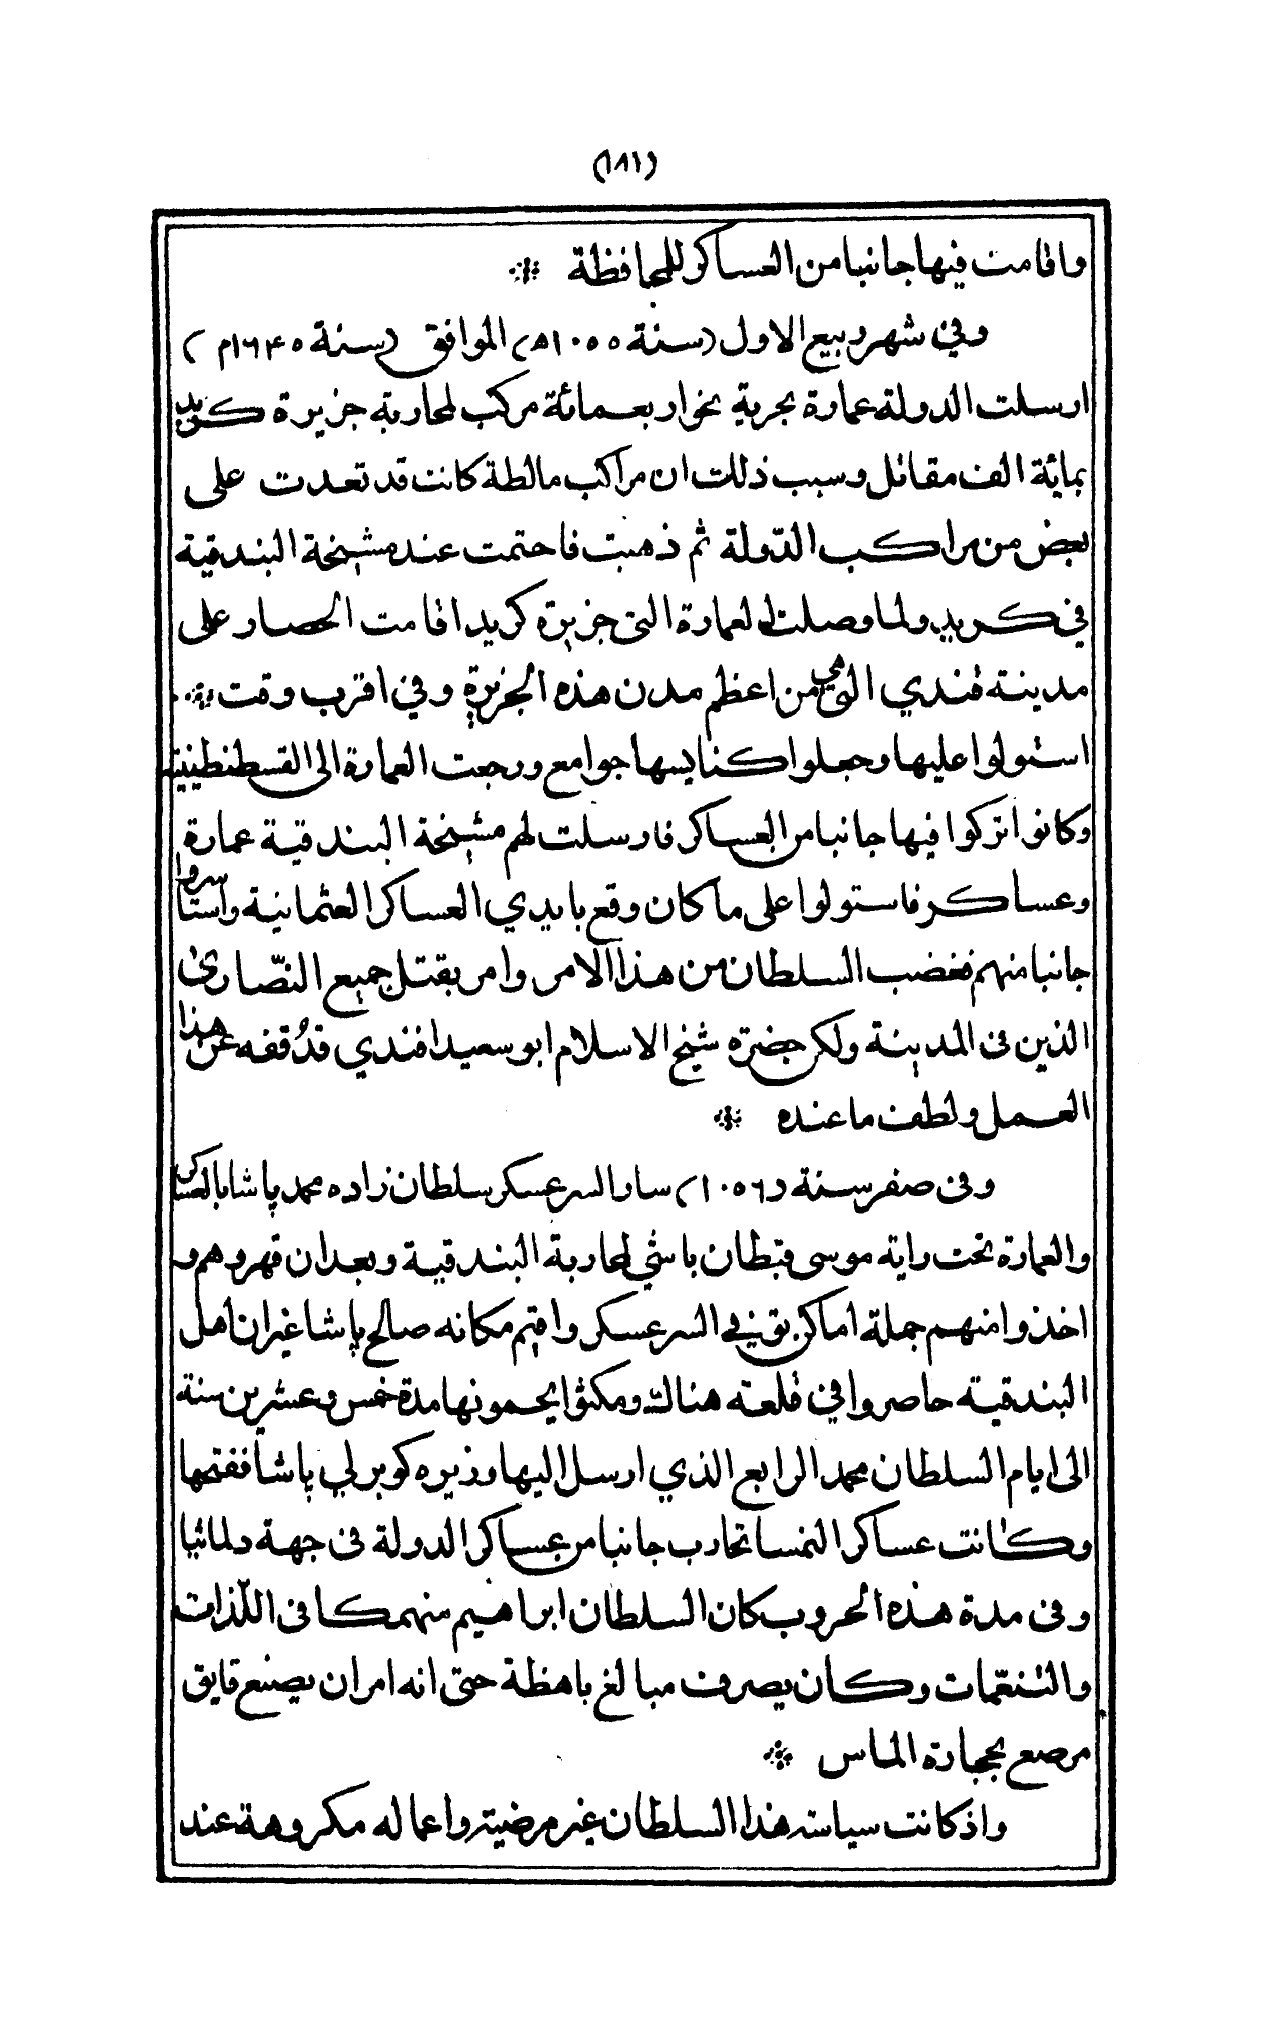 (١٨١)
واقامت فيها جانبا من العساكر للمحافظة
وفي شهر ربيع الاول (سنة ١٠٥٥ه‍) الموافق (سنة ١٦٤٥م)
ارسلت الدولة عمارة بحرية نحو اربعمائة مركب لمحاربة جزيرة كريد
بمائة الف مقاتل وسبب ذلك ان مراكب مالطة كانت قد تعدت على
بعض من مراكب الدّولة ثم ذهبت فاحتمت عند مشيخة البندقية
في كريد ولما وصلت العمارة الى جزيرة كريد اقامت الحصار على
مدينة قندي التي هي من اعظم مدن هذه الجزيرة وفي اقرب وقت
استولوا عليها وجعلوا كنايسها جوامع ورجعت العمارة الى القسطنطينية
وكانوا تركوا فيها جانبا من العساكر فارسلت لهم مشيخة البندقية عمارة
وعساكر فاستولوا على ما كان وقع بايدي العساكر العثمانية واستاسروا
جانبا منهم فغضب السلطان من هذا الامر وامر بقتل جميع النصّارى
الذين في المدينة ولكن حضرة شيخ الاسلام ابو سعيد افندي قد وقفه عن هذا
العمل ولطف ما عنده
وفي صفر سنة (١٠٥٦) سار السرعسكر سلطان زاده محمد پاشا بالعساكر
والعمارة تحت راية موسى قبطان باشي لمحاربة البندقية وبعد ان قهروهم و
اخذوا منهم جملة اماكن توفي السرعسكر واقيم مكانه صالح پاشا غير ان اهل
البندقية حاصروا في قلعة هناك ومكثوا يحمونها مدة خمس وعشرين سنة
الى ايام السلطان محمد الرابع الذي ارسل اليها وزيره كوبرلي پاشا ففتحها
وكانت عساكر النمسا تحارب جانبا من عساكر الدولة في جهة دلماتيا
وفي مدة هذه الحروب كان السلطان ابراهيم منهمكا في اللّذات
والتنعّمات وكان يصرف مبالغ باهظة حتى انه امر ان يصنع قايق
مرصع بحجارة الماس
واذ كانت سياسة هذا السلطان غير مرضية واعماله مكروهة عند